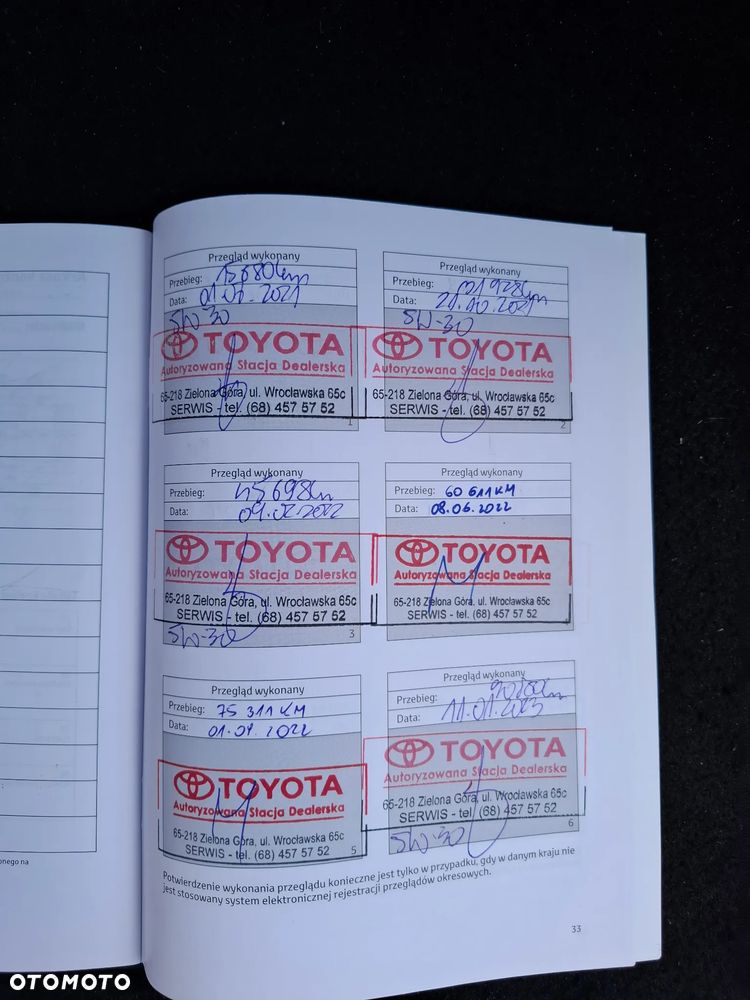 Przegląd wykonany
Przebieg: 15680km
Data: 01.07.2021
5W-30
TOYOTA
Autoryzowana Stacja Dealerska
65-218 Zielona Góra, ul. Wrocławska 65c
SERWIS - tel. (68) 457 57 52
1
Przegląd wykonany
Przebieg: 31928km
Data: 21.10.2021
5W-30
TOYOTA
Autoryzowana Stacja Dealerska
65-218 Zielona Góra, ul. Wrocławska 65c
SERWIS - tel. (68) 457 57 52
2
Przegląd wykonany
Przebieg: 45698km
Data: 09.02.2022
TOYOTA
Autoryzowana Stacja Dealerska
65-218 Zielona Góra, ul. Wrocławska 65c
SERWIS - tel. (68) 457 57 52
5W-30
3
Przegląd wykonany
Przebieg: 60 611 KM
Data: 08.06.2022
TOYOTA
Autoryzowana Stacja Dealerska
65-218 Zielona Góra, ul. Wrocławska 65c
SERWIS - tel. (68) 457 57 52
Przegląd wykonany
Przebieg: 75 311 KM
Data: 2022
TOYOTA
Autoryzowana Stacja Dealerska
65-218 Zielona Góra, ul. Wrocławska 65c
SERWIS - tel. (68) 457 57 52
5
Przegląd wykonany
Przebieg:
Data: 11.01.2023
TOYOTA
Autoryzowana Stacja Dealerska
65-218 Zielona Góra, ul. Wrocławska 65c
SERWIS - tel. (68) 457 57 52
5W-30
6
Potwierdzenie wykonania przeglądu konieczne jest tylko w przypadku, gdy w danym kraju nie
jest stosowany system elektronicznej rejestracji przeglądów okresowych.
33
onego na
OTOMOTO